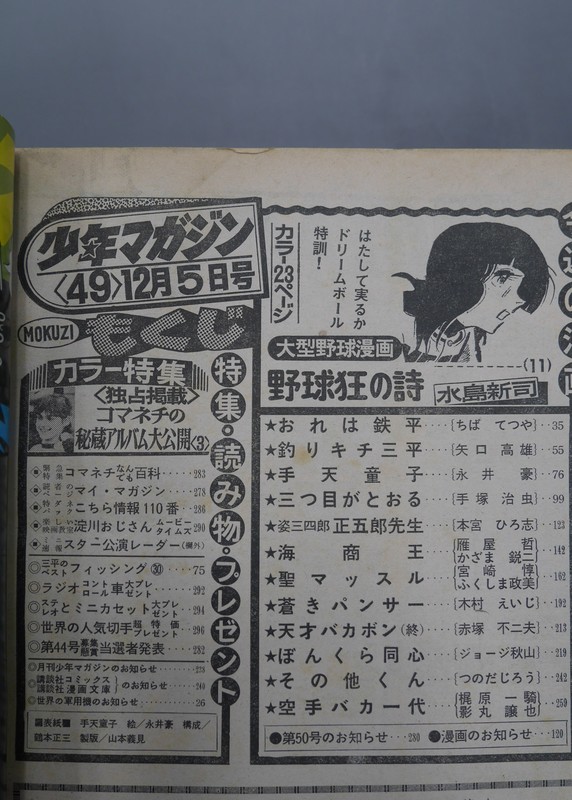 少年マガジン
〈49〉12月5日号
MOKUZI もくじ
はたして実るか
ドリームボール
特訓!
カラー23ページ
大型野球漫画
野球狂の詩 水島新司 (11)
★おれは鉄平〔ちばてつや〕35
★釣りキチ三平〔矢口高雄〕55
★手天童子〔永井豪〕76
★三つ目がとおる〔手塚治虫〕99
★姿三四郎正五郎先生〔本宮ひろ志〕123
★海商王〔雁屋哲 かざま鋭二〕142
★聖マッスル〔宮崎惇 ふくしま政美〕162
★蒼きパンサー〔木村えいじ〕192
★天才バカボン(終)〔赤塚不二夫〕213
★ぼんくら同心〔ジョージ秋山〕219
★その他くん〔つのだじろう〕242
★空手バカ一代〔梶原一騎 影丸譲也〕259
●第50号のお知らせ…280 ●漫画のお知らせ…120
特集・読み物・プレゼント
カラー特集
〈独占掲載〉
コマネチの
秘蔵アルバム大公開〈3〉
コマネチなんでも百科…283
マイ・マガジン…278
こちら情報110番…286
淀川おじさんムービータイムズ290
スター公演レーダー(欄外)
◎三平のベストフィッシング㉚…75
◎ラジオコントロール車大プレゼント…292
◎ステレオとミニカセット大プレゼント…294
◎世界の人気切手超特価プレゼント…296
◎第44号募集懸賞当選者発表…282
○月刊少年マガジンのお知らせ
○講談社コミックス 講談社漫画文庫のお知らせ…240
○世界の軍用機のお知らせ…26
■表紙■ 手天童子 絵/永井豪 構成/
鵜本正三 製版/山本義見